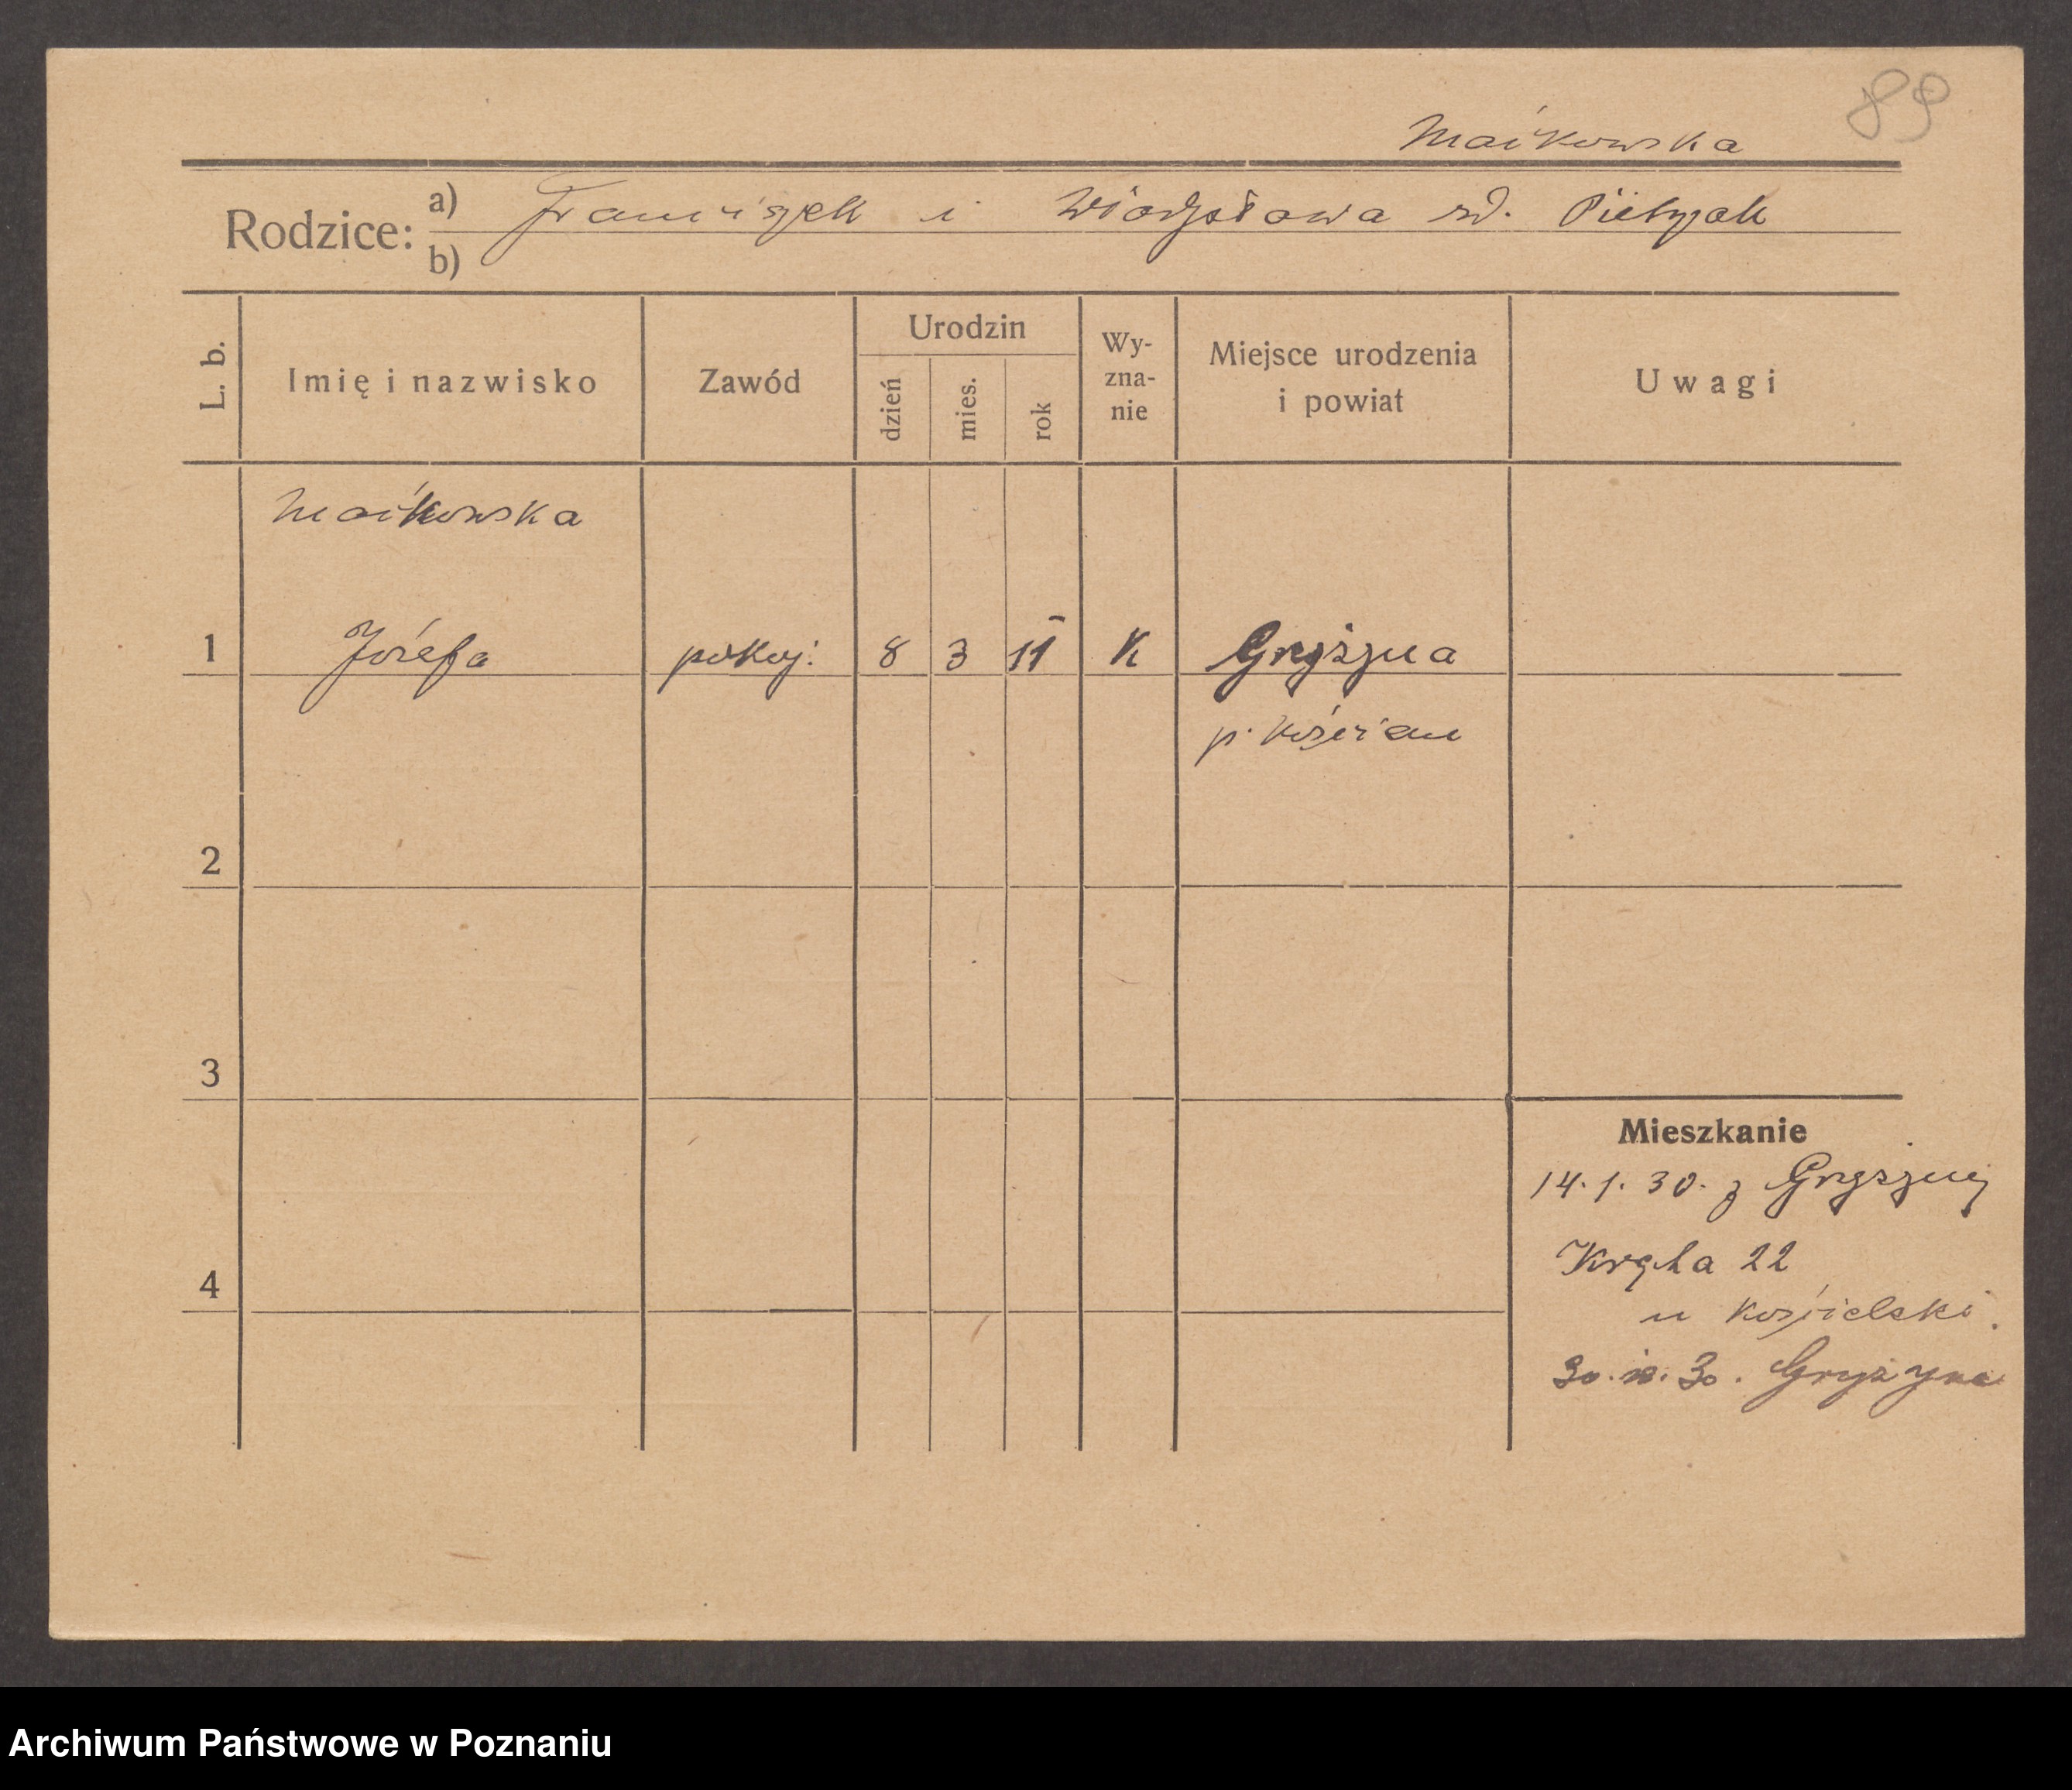 89
Maćkowska
Rodzice: a) Franciszek i Władysława rd. Pietrzak
b)
L. b. Imię i nazwisko Zawód Urodzin dzień mies. rok Wy-zna-nie Miejsce urodzenia i powiat Uwagi
Maćkowska
1 Józefa pokoj. 8 3 11 K Gryżyna
p. Kościan
2
3
Mieszkanie
14. 1. 30. z Gryżyny
22
4
u Kościelski.
30. 30. Gryżyna
Archiwum Państwowe w Poznaniu